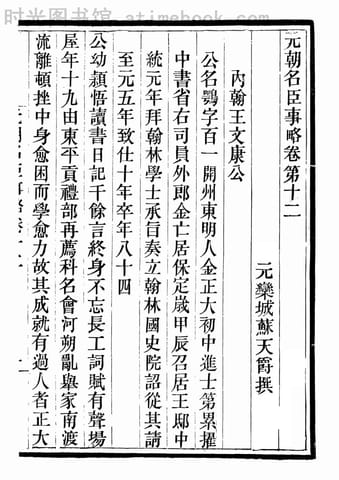 时光图书馆 www.atimebook.com
元朝名臣事略卷第十二
元欒城蘇天爵撰
內翰王文康公
公名鶚字百一開州東明人金正大初中進士第累擢
中書省右司員外郎金亡居保定歲甲辰召居王邸中
統元年拜翰林學士承旨奏立翰林國史院詔從其請
至元五年致仕十年卒年八十四
公幼穎悟讀書日記千餘言終身不忘長工詞賦有聲場
屋年十九由東平貢禮部再薦科名會河朔亂舉家南渡
流離頓挫中身愈困而學愈力故其成就有過人者正大